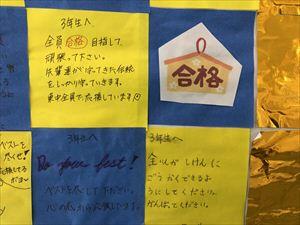 3年生へ
全員合格目指して
頑張って下さい。
をしっかり守っていきます。
東中全員で応援しています
合格
3年生へ
Do your best!
ベストを尽くして下さい。
心の底から応援してます。
3年生へ
全いんが しけんに
ごうかくできるよ
うにしてください。
がんばってください。